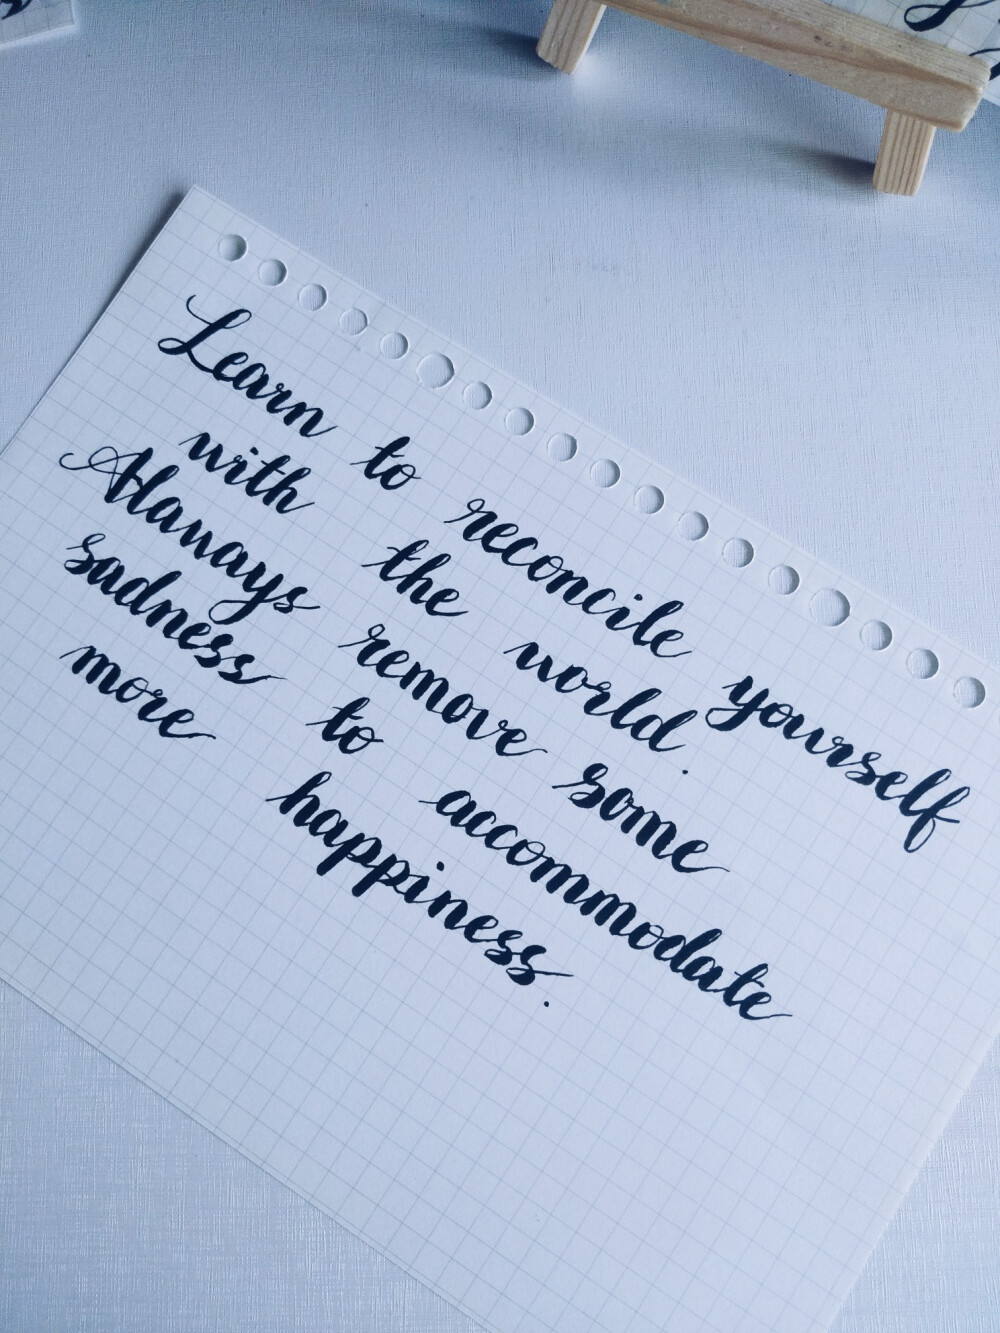 Learn to reconcile yourself
with the world.
Alaways remove some
sadness to accommodate
more happiness.